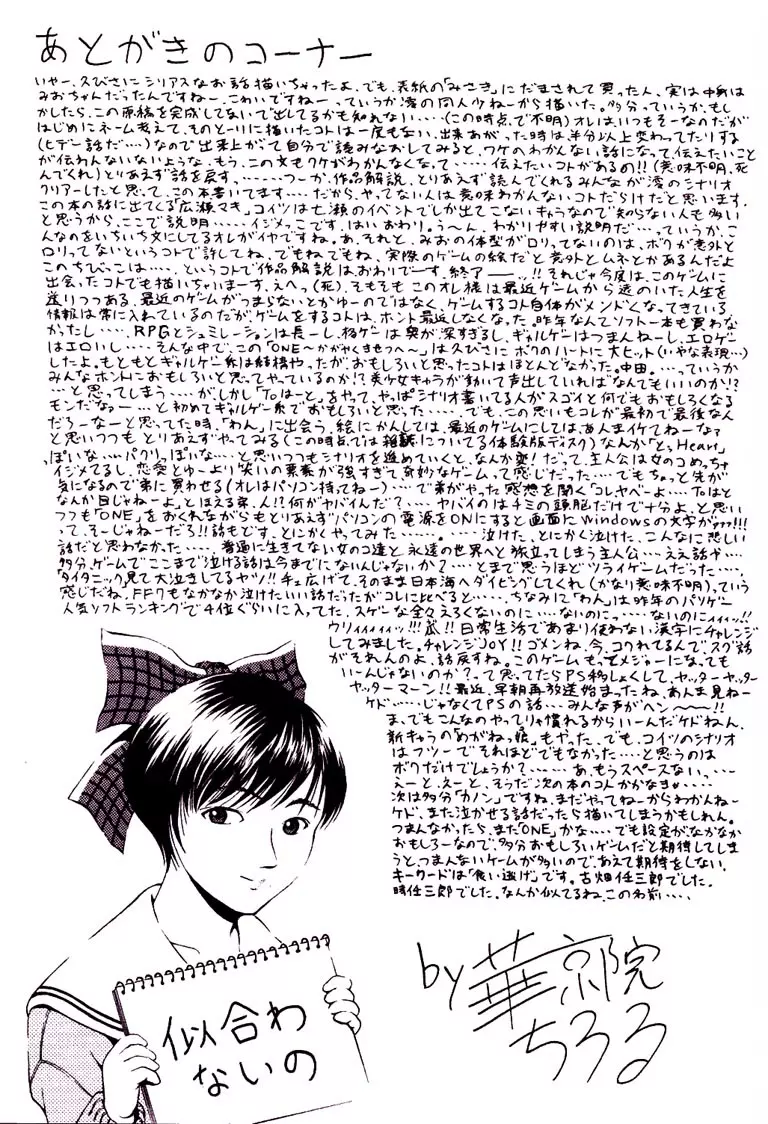 あとがきのコーナー
いやー、久びさにシリアスなお話描いちゃったよ。でも、表紙の「みさき」にだまされて買った人、実は中身は
みおちゃんだったんですねー。こわいですねー。っていうか澪の同人少ねーから描いた。多分っていうか、もし
かしたら、この原稿を完成してないで出してるかも知れない‥‥(この時点で不明)オレは、いつもそーなのだが
はじめにネーム考えて、そのとーりに描いたコトは一度もない、出来あがった時は半分以上変わってたりする
(ヒデー話だ‥‥)なので出来上がって自分で読みなおしてみると、ワケのわかんない話になって、伝えたいこと
が伝わんないないような、もう、この文もワケがわかんなくなって‥‥‥伝えたいコトがあるの!!(意味不明、死
んでくれ)とりあえず話を戻す。‥‥‥つーか、作品解説、とりあえず読んでくれるみんなが澪のシナリオ
クリアーしたと思って、この本書いてます‥‥だから、やってない人は意味わかんないコトだらけだと思います。
この本の話に出てくる「広瀬マキ」コイツは七瀬のイベントでしか出てこないキャラなので知らない人も多い
と思うから、ここで説明‥‥‥イジメっこです。はいおわり。う〜ん、わかりやすい説明だ‥‥っていうか、こ
んなのをいちいち文にしてるオレがイヤですね。あ、それと、みおの体型がロリってないのは、ボクが意外とロ
リってないというコトで許してね、でもねでもね、実際のゲームの絵だと意外とムネとかあるんだよ
このちびっこは‥‥、というコトで作品解説はおわりでーす。終了ァーーッ!!それじゃ今度は、このゲームに
出会ったコトでも描いちゃいまーす。えへっ(死)、そもそもこのオレ様は最近ゲームから遠のいた人生を
送りつつある。最近のゲームがつまらないとかゆーのではなく、ゲームするコト自体がメンドくなってきている
情報は常に入れているのだが、ゲームをするコトは、ホント最近しなくなった。昨年なんてソフト一本も買わな
かったし‥‥、RPGとシュミレーションは長ーし、格ゲーは奥が深すぎるし、ギャルゲーはつまんねーし、エロゲー
はエロいし‥‥そんな中で、この「ONE〜かがやくきせつへ〜」は久びさにボクのハートに大ヒット(いやな表現‥)
したよ。もともとギャルゲー系は結構やったが、おもしろいと思ったコトはほとんどなかった。中田。‥‥っていうか
みんなホントにおもしろいと思ってやっているのか!?美少女キャラが動いて声出していればなんでもいいのか!?
‥‥と思ってしまう‥‥がしかし「Toはーと」をやって、やっぱシナリオ書いてる人がスゴイと何でもおもしろくなる
モンだなぁー‥‥と初めてギャルゲー系でおもしろいと思った‥‥‥でも、この思いもコレが最初で最後なん
だろーなーと思ってた時、「わん」に出会う、絵にかんしては、最近のゲームにしては、あんまイケてねーなァ
と思いつつもとりあえずやってみる(この時点では雑誌についてる体験版ディスク)なんか「とぅHeart」
っぽいな‥‥パクリっぽいな‥‥と思いつつもシナリオを進めていくと、なんか変!だって、主人公は女のコめっちゃ
イジメてるし、恋愛とゆーより笑いの要素が強すぎて奇妙なゲームって感じだった‥‥でもちょっと先が
気になるので弟に買わせる(オレはパソコン持ってねー)‥‥で弟がやった感想を聞く「コレヤベーよ‥‥Toはーと
なんか目じゃねーよ。」とほえる弟、人!?何がヤバイんだ?‥‥ヤバイのはキミの頭脳だけで十分よ、と思い
つつも「ONE」をおくれながらもとりあえずパソコンの電源をONにすると画面にWindowsの文字がァァァ!!!
って、そーじゃねーだろ!!話もどす、とにかくやってみた‥‥‥。‥‥泣けた、とにかく泣けた、こんなに悲しい
話だと思わなかった‥‥‥普通に生きてない女のコ達と永遠の世界へと旅立ってしまう主人公‥‥ええ話や‥‥
多分、ゲームでここまで泣ける話は今までにないんじゃないか?‥‥とまで思うほどツライゲームだった‥‥、
「タイタニック」見て大泣きしてるヤツ!!手広げて、そのまま日本海へダイビングしてくれ(かなり意味不明)。っていう
感じだね、FF7もなかなか泣けたいい話だったがコレに比べると‥‥、ちなみに「わん」は昨年のパソゲー
人気ソフトランキングで4位ぐらいに入ってた。スゲーな全々えろくないのに‥‥ないのにっ‥‥ないのにィィィッ!!
ウリィィィィィッ!!!瓜!!日常生活であまり使わない漢字にチャレンジ
してみました。チャレンジJOY!!ゴメンね、今、コワれてるんでスグ話
がそれんのよ、話戻すね。このゲームもってメジャーになっても
いーんじゃないのか?って思ってたらPS移しょくして、ヤッターヤッター
ヤッターマーン!!最近、早朝再放送始まったね、あんま見ねー
ケド‥‥じゃなくてPSの話‥‥みんな声がヘン〜〜〜!!
ま、でもこんなのやってりゃ慣れるからいーんだケドねん、
新キャラの「めがねっ娘」もやった、でも、コイツのシナリオ
はフツーでそれほどでもなかった‥‥と思うのは
ボクだけでしょうか?‥‥‥あ、もうスペースない、‥‥
えーと、えーと、そうだ次の本のコトかかなきゃ‥‥‥
次は多分「カノン」ですね、まだやってねーからわかんねー
ケド、また泣かせる話だったら描いてしまうかもしれん。
つまんなかったら、また「ONE」かな‥‥でも設定がなかなか
おもしろーなので、多分おもしろいゲームだと期待してしま
うと、つまんないゲームが多いので、あえて期待をしない。
キーワードは「食い逃げ」です。古畑任三郎でした。
時任三郎でした。なんか似てるね、この名前‥‥、
似合わ
ないの
by 華京院
ちろる